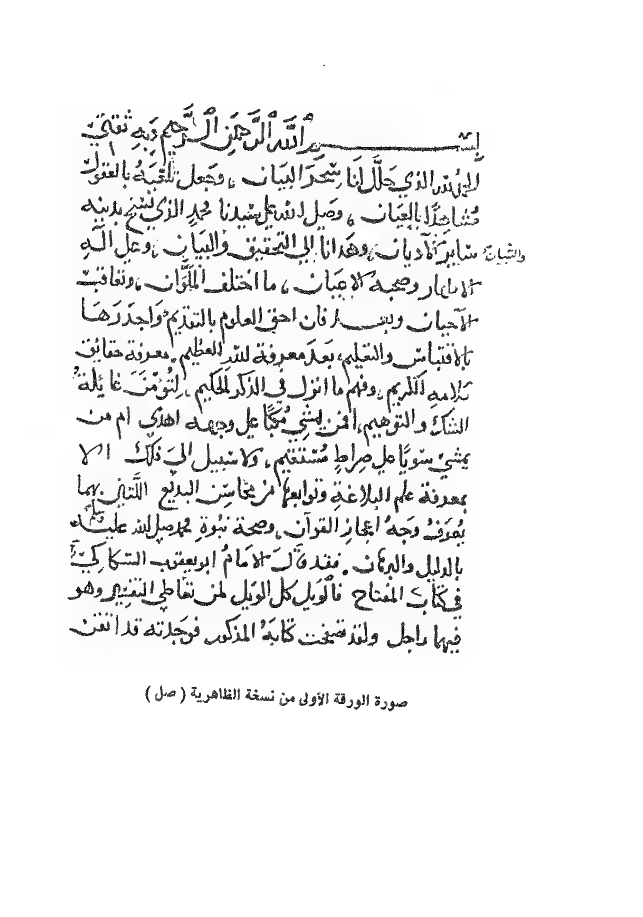 بسم الله الرحمن الرحيم وبه ثقتي
الحمد لله الذي حلل لنا سحر البيان ، وجعل تلقبه بالعقول
مشاهدا بالعيان ، وصلى الله على سيدنا محمد الذي نسخ بدينه
ساير الاديان ، وهدانا الى التحقيق والبيان ، وعلى اله
والتبيان
وصحبه الاعيان ، ما اختلف الملوان ، وتعاقب
الاحيان وبعد فان احق العلوم بالتقديم واجدرها
بالاقتباس والتعليم ، بعد معرفة الله العظيم . معرفة حقايق
كلامه الكريم ، وفهم ما انزل في الذكر الحكيم ، لتؤمن غايلة
الشك والتوهيم ، افمن يمشي مكبا على وجهه اهدى ام من
يمشي سويا على صراط مستقيم ، ولا سبيل الى ذلك الا
بمعرفة علم البلاغة وتوابعها من محاسن البديع اللتين بهما
يعرف وجه اعجاز القرآن ، وصحة نبوة محمد صلى الله عليه وسلم
بالدليل والبرهان . فقد قال الامام ابو يعقوب السكاكي
في كتاب المفتاح فالويل كل الويل لمن تعاطى التفسير وهو
فيهما راجل ولقد تصفحت كتابه المذكور فوجدته قد اتقن
صورة الورقة الأولى من نسخة الظاهرية ( صل )